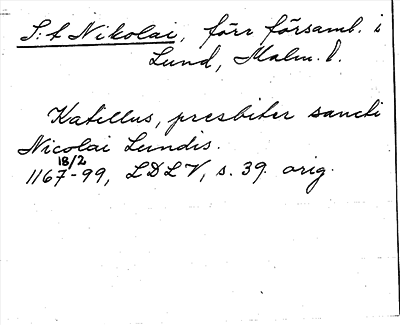 S:t Nikolai, förr församl. i
Lund, Malm. l.
Katillus, presbiter sancti
Nicolai Lundis.
18/2
1167-99, LDLV, s. 39. orig.